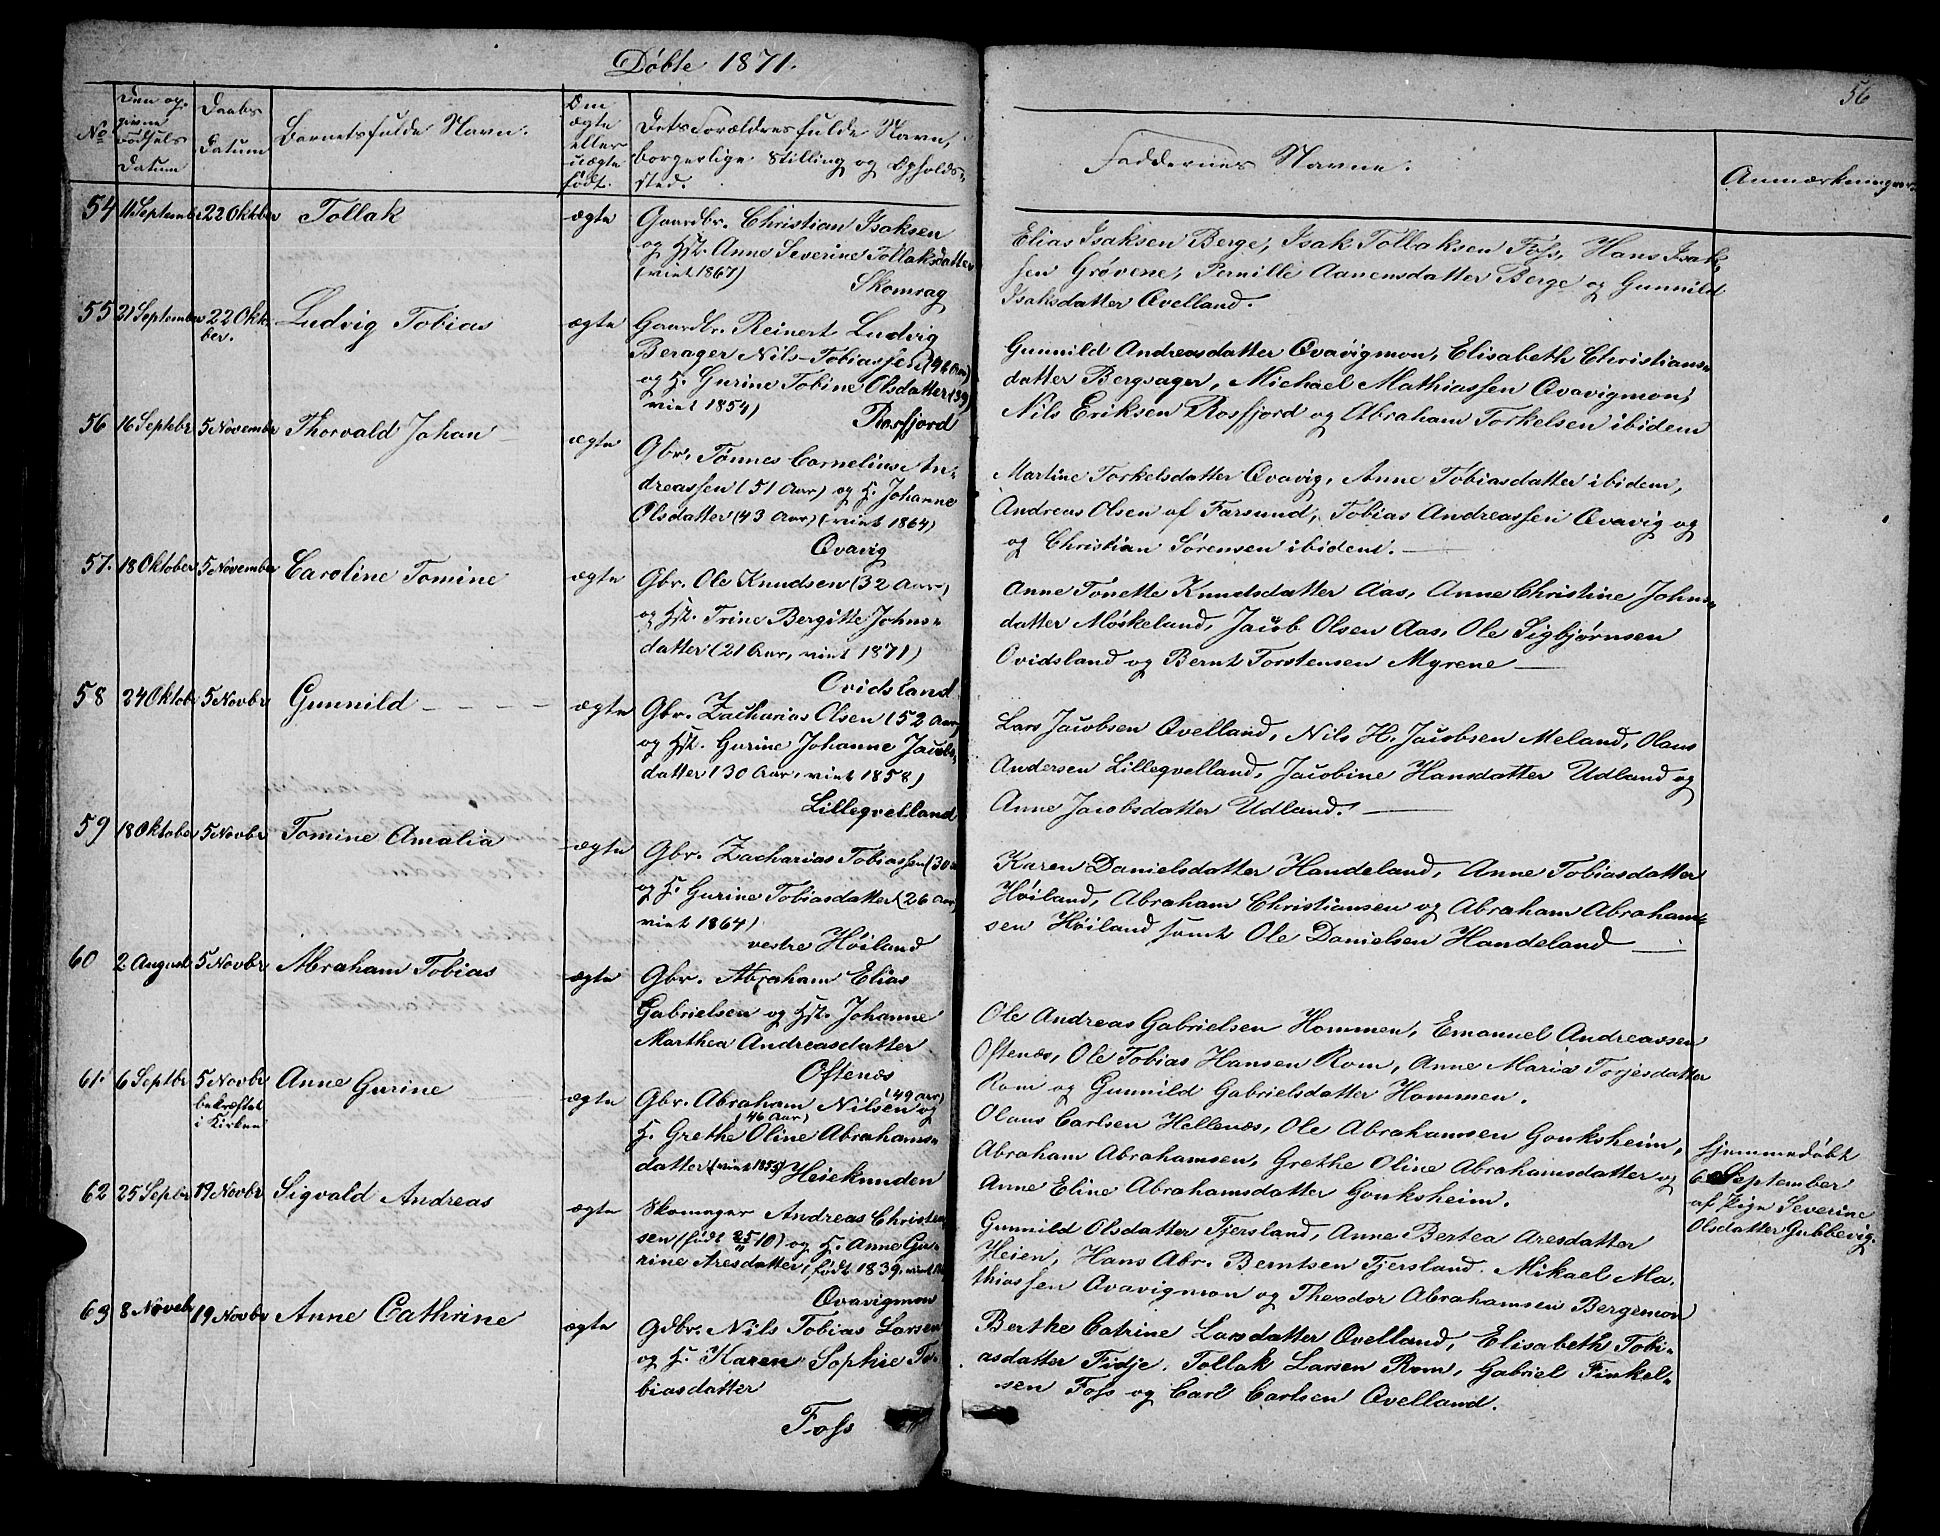 Døbte 1871.
56
No
Den op-
givne
Fødsels
Datum
Daabs
Datum
Barnets fulde Navn.
Om
ægte
eller
uægte
født.
Dets Forældres fulde Navn,
borgerlige Stilling og Opholds-
sted.
Faddernes Navne.
Anmærkninger.
54 11 Septembr 22 Oktber Tollak ægte Gaardbr. Christian Isaksen
og Hst. Anne Severine Tollaksdatter
(viet 1867)
Skomrag
Elias Isaksen Berge, Isak Tollaksen Foss, Hans Isak-
sen Grøvene, Pernille Aanensdatter Berge og Gunnild
Isaksdatter Qvelland.
55 21 September 22 Okt-
ber.
Ludvig Tobias ægte Gaardbr. Reinert Ludvig
Berager Nils-Tobiassen (46 Aar)
og H. Gurine Tobine Olsdatter (39)
viet 1854)
Rosfjord
Gunnild Andreasdatter Qvavigmon, Elisabeth Christians-
datter Bergsager, Michael Mathiassen Qvavigmon,
Nils Eriksen Rosfjord og Abraham Torkelsen ibidem
56 16 Septbr 5 Novembr Thorvald Johan ægte Gbr. Tønnes Cornelius An-
dreassen (51 Aar) og H. Johanne
Olsdatter (43 Aar) (viet 1864)
Qvavig
Martine Torkelsdatter Qvavig, Anne Tobiasdatter ibidem,
Andreas Olsen af Farsund, Tobias Andreassen Qvavig og
og Christian Sørensen ibidem.
57. 18 Oktober 5 November Caroline Tomine ægte Gbr. Ole Knudsen (32 Aar)
og Hst. Trine Bergitte Johns-
datter (21 Aar, viet 1871)
Ovidsland
Anne Tonette Knudsdatter Aas, Anne Christine Johns-
datter Møskeland, Jacob Olsen Aas, Ole Sigbjørnsen
Ovidsland og Bernt Torstensen Myrene
58 24 Oktobr 5 Novbr Gunnild - - - - ægte Gbr. Zacharias Olsen (52 Aar)
og Hst. Gurine Johanne Jacobs-
datter (30 Aar, viet 1858)
Lilleqvelland
Lars Jacobsen Qvelland, Nils H. Jacobsen Meland, Olaus
Andersen Lilleqvelland, Jacobine Hansdatter Udland og
Anne Jacobsdatter Udland.
59 18 Oktober 5 Novbr Tomine Amalia ægte Gbr. Zacharias Tobiassen (30
og H. Gurine Tobiasdatter (26 Aar)
viet 1864)
vestre Høiland
Karen Danielsdatter Handeland, Anne Tobiasdatter
Høiland, Abraham Christiansen og Abraham Abraham-
sen Høiland samt Ole Danielsen Handeland
60 2 August 5 Novbr Abraham Tobias ægte Gbr. Abraham Elias
Gabrielsen og Hst. Johanne
Marthea Andreasdatter
Oftenæs
Ole Andreas Gabrielsen Hommen, Emanuel Andreassen
Oftenæs, Ole Tobias Hansen Rom, Anne Maria Torjesdatter
Rom og Gunnild Gabrielsdatter Hommen.
61. 6 Septbr 5 Novbr
bekræftet
i Kirken
Anne Gurine ægte Gbr. Abraham Nilsen (49 Aar) og
H. Grethe Oline (46 Aar) Abrahams-
datter (viet 1853) Heieknuden
Olaus Carlsen Hellenæs, Ole Abrahamsen Gouksheim,
Abraham Abrahamsen, Grethe Oline Abrahamsdatter og
Anne Eline Abrahamsdatter Gouksheim.
Hjemmedøbt
6 September
af Pige Severine
Olsdatter Gubbevig.
62 25 Sepbr 19 Novbr Sigvald Andreas ægte Skomager Andreas Christen-
sen (født 25/10) og H. Anne Gu-
rine Aresdatter, født 1839, viet
Qvavigmon
Gunnild Olsdatter Tjersland, Anne Bertea Aresdatter
Heien, Hans Abr. Berntsen Tjersland. Mikael Ma-
thiassen Qvavigmon og Theodor Abrahamsen Bergemon
63 8 Novebr 19 Novbr Anne Cathrine ægte Gdbr. Nils Tobias Larsen
og H. Karen Sophie To-
biasdatter
Foss
Berthe Catrine Larsdatter Qvelland, Elisabeth Tobi-
asdatter Fidje, Tollak Larsen Rom, Gabriel Finkel-
sen Foss og Carl Carlsen Qvelland.